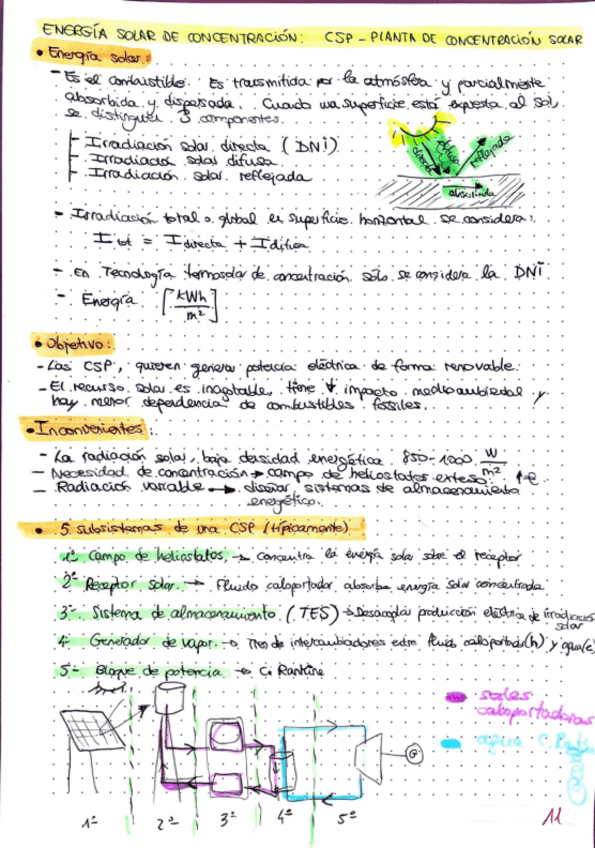 ENERGÍA SOLAR DE CONCENTRACIÓN: CSP - PLANTA DE CONCENTRACIÓN SOLAR
• Energía solar:
- Es el combustible. Es transmitida por la atmósfera y parcialmente
absorbida y dispersada. Cuando una superficie está expuesta al sol,
se distinguen 3 componentes.
- Irradiación solar directa (DNI)
- Irradiación solar difusa
- Irradiación solar reflejada
directa
difusa
reflejada
absorbida
- Irradiación total o global en superficie horizontal se considera:
I tot = I directa + I difusa
- En Tecnología termosolar de concentración sólo se considera la DNI
- Energía [kWh/m²]
• Objetivo:
- Las CSP, quieren generar potencia eléctrica de forma renovable.
- El recurso solar es inagotable, tiene ↓ impacto medioambiental y
hay menor dependencia de combustibles fósiles.
• Inconvenientes:
- La radiación solar, baja densidad energética 850-1000 W/m²
- Necesidad de concentración → campo de heliostatos extenso
- Radiación variable → diseñar sistemas de almacenamiento
energético.
• 5 subsistemas de una CSP (típicamente)
1º Campo de heliostatos → Concentra la energía solar sobre el receptor
2º Receptor solar → Fluido caloportador absorbe energía solar concentrada
3º Sistema de almacenamiento (TES) → Desacoplar producción eléctrica de irradiación
solar
4º Generador de vapor → Tren de intercambiadores entre fluido caloportador(h) y agua(c)
5º Bloque de potencia → C. Rankine
sales
caloportadoras
agua C.
G
1º 2º 3º 4º 5º
11